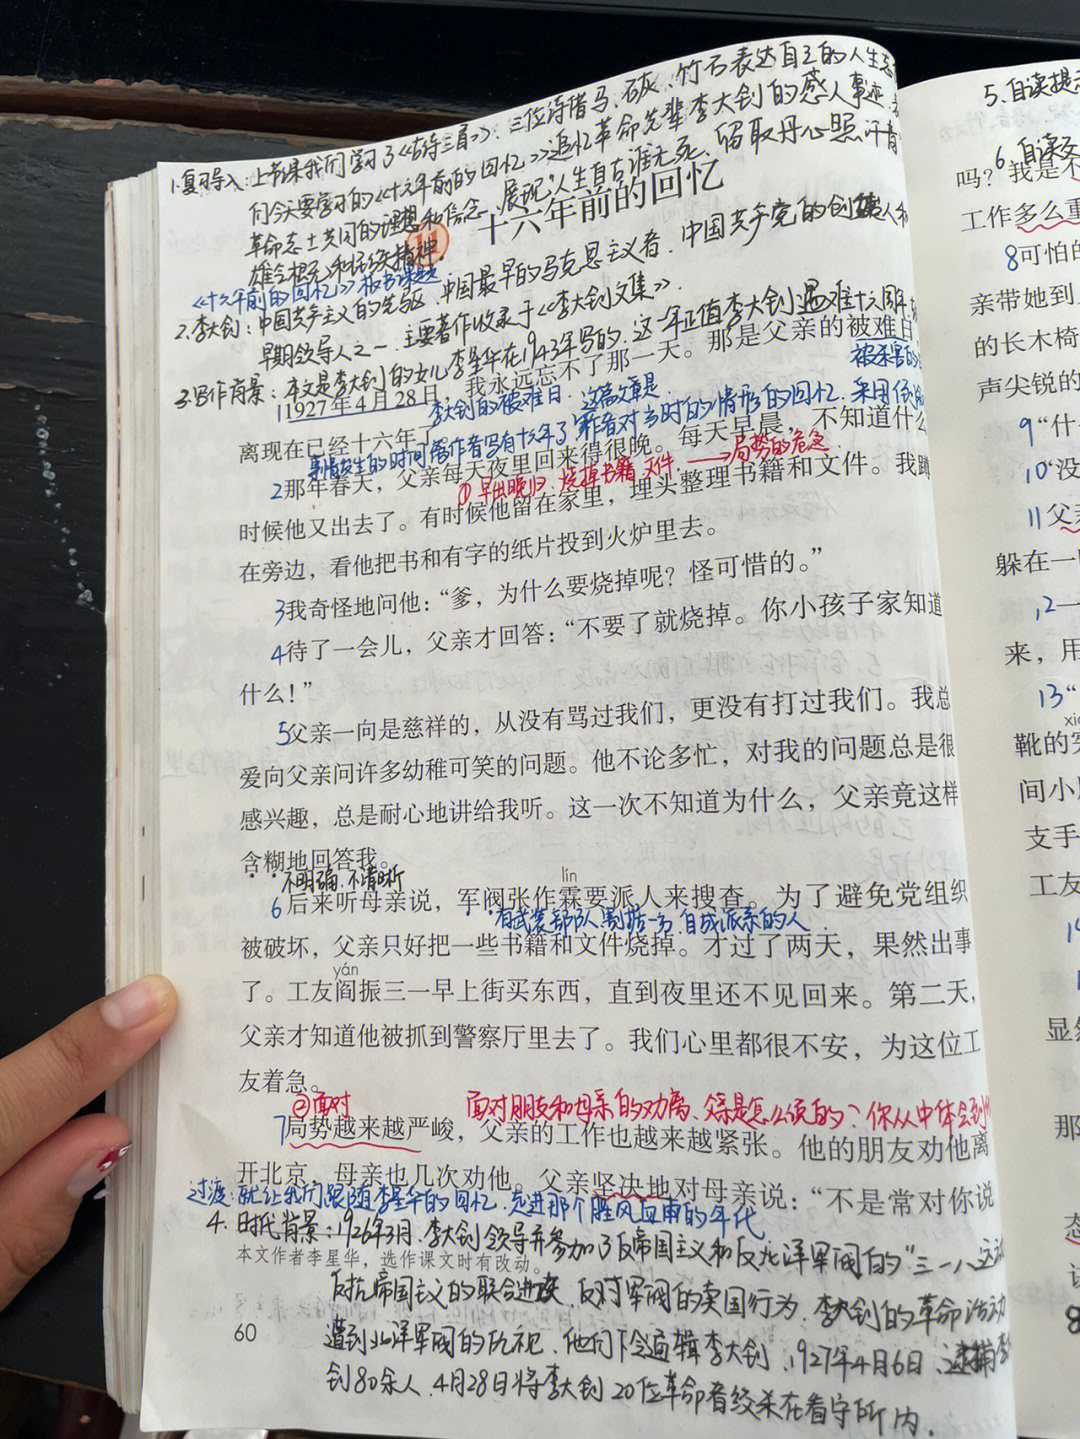 1.复习导入:上节课我们学习了《古诗三首》:三位诗借马、石灰、竹石表达自己的人生态
们今天要学习的《十六年前的回忆》追忆革命先辈李大钊的感人事迹
革命志士共同的理想和信念,展现"人生自古谁无死,留取丹心照汗青
雄 精神
11 十六年前的回忆
《十六年前的回忆》板书课题
2.李大钊:中国共产主义的先驱、中国最早的马克思主义者、中国共产党的创始人和
早期领导人之一,主要著作收录于《李大钊文集》.
3.写作背景:本文是李大钊的女儿李星华在1943年写的,这一年正值李大钊遇难十六周年
1 1927年4月28日,我永远忘不了那一天。那是父亲的被难日,
李大钊的被难日.这篇文章是 被杀害的
离现在已经十六年了。
事情发生的时间离作者写有十六年了 作者对当时的情形的回忆,采用倒
2那年春天,父亲每天夜里回来得很晚。每天早晨,不知道什么
①早出晚归、烧掉书籍、文件.→局势的危急
时候他又出去了。有时候他留在家里,埋头整理书籍和文件。我蹲
在旁边,看他把书和有字的纸片投到火炉里去。
3我奇怪地问他:“爹,为什么要烧掉呢?怪可惜的。”
4待了一会儿,父亲才回答:“不要了就烧掉。你小孩子家知道
什么!”
5父亲一向是慈祥的,从没有骂过我们,更没有打过我们。我总
爱向父亲问许多幼稚可笑的问题。他不论多忙,对我的问题总是很
感兴趣,总是耐心地讲给我听。这一次不知道为什么,父亲竟这样
含糊地回答我。
不明确.不清晰
lín
6后来听母亲说,军阀张作霖要派人来搜查。为了避免党组织
有武装部队割据一方,自成派系的人.
被破坏,父亲只好把一些书籍和文件烧掉。才过了两天,果然出事
yán
了。工友阎振三一早上街买东西,直到夜里还不见回来。第二天,
父亲才知道他被抓到警察厅里去了。我们心里都很不安,为这位工
友着急。
②面对 面对朋友和母亲的劝离,父亲是怎么做的?你从中体会到
7局势越来越严峻,父亲的工作也越来越紧张。他的朋友劝他离
开北京,母亲也几次劝他。父亲坚决地对母亲说:“不是常对你说
过渡:就让我们跟随李星华的回忆,走进那个腥风血雨的年代
4.时代背景:1926年3月,李大钊领导并参加了反帝国主义和反北洋军阀的"三一八"运动
本文作者李星华,选作课文时有改动。
反抗帝国主义的联合进攻,反对军阀的卖国行为,李大钊的革命活动
遭到北洋军阀的仇视,他们下令通辑李大钊,1927年4月6日,逮捕李
60
钊80余人,4月28日将李大钊20位革命者绞杀在看守所内.
5.自读提示
6.自读
吗?我是不
工作多么重
8可怕的
亲带她到
的长木椅
声尖锐的
9“什
10“没
11父亲
躲在一
12一
来,用
13“
靴的
间小
支手
工友
显然
那